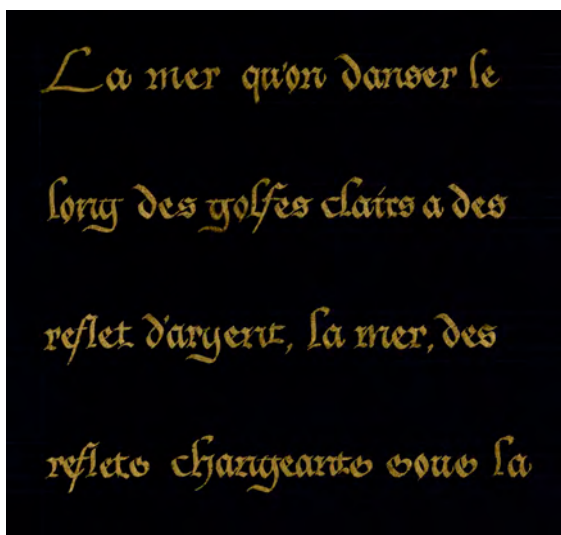 La mer qu'on danser le
long des golfes clairs a des
reflet d'argent, la mer, des
reflets changeants sous la